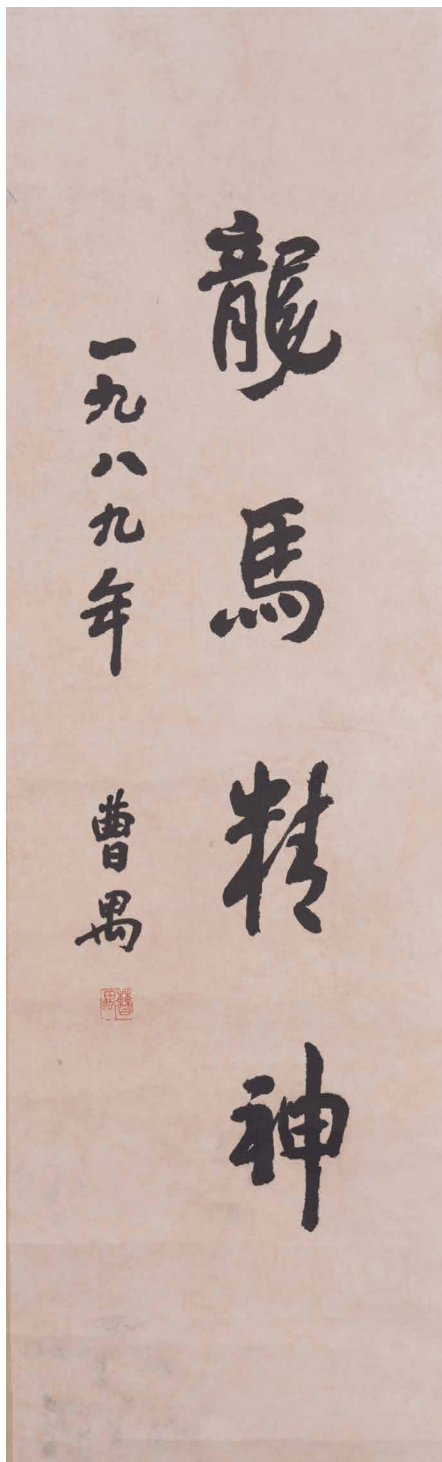 龍馬精神
一九八九年 曹禺
曹禺